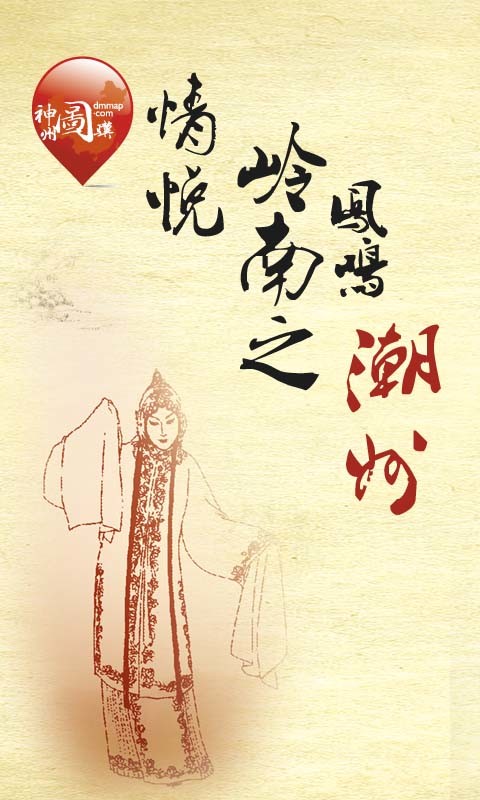 神州圖驥
dmmap
.com
情悦
岭南之
鳳鳴
潮州